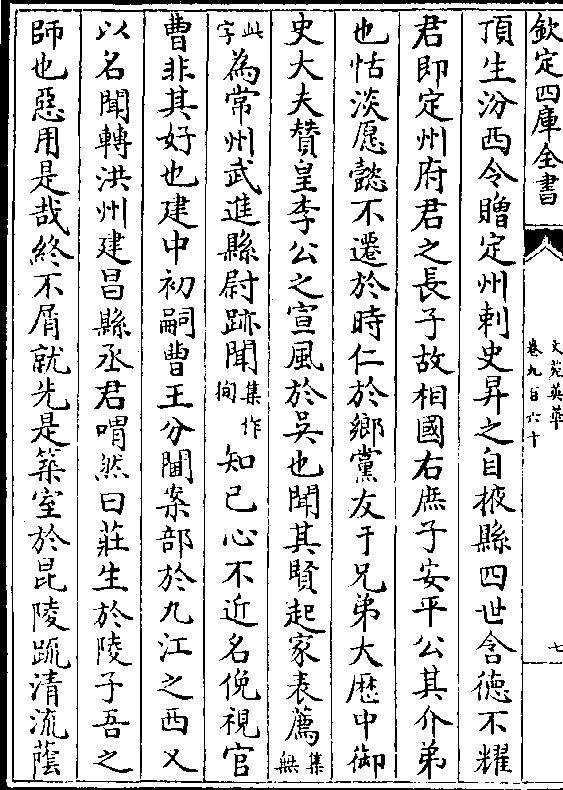 欽定四庫全書
文苑英華
卷九百六十
七
頂生汾西令贈定州刺史昇之自掖縣四世含德不耀
君即定州府君之長子故相國右庶子安平公其介弟
也恬淡愿懿不遷於時仁於鄉黨友于兄弟大厯中御
史大夫贊皇李公之宣風於吳也聞其賢起家表薦集無
此字為常州武進縣尉跡聞集作徇知已心不近名俛視官
曹非其好也建中初嗣曹王分閫案部於九江之西又
以名聞轉洪州建昌縣丞君喟然曰莊生於陵子吾之
師也惡用是哉終不屑就先是築室於昆陵䟽清流蔭